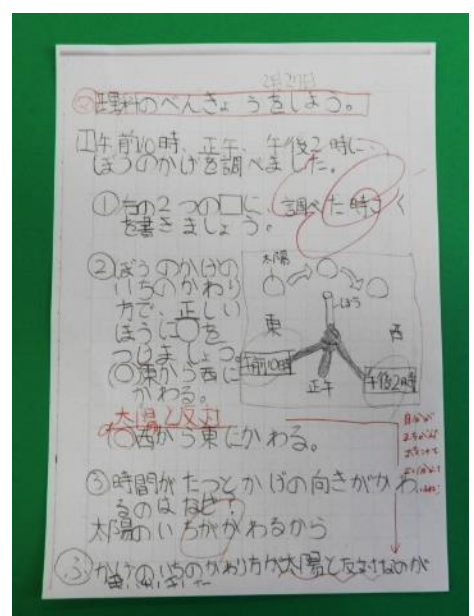 2月27日
理科のべんきょうをしよう。
1 午前10時、正午、午後2時に、
ぼうのかげを調べました。
①右の2つの□に、調べた時こく
を書きましょう。
②ぼうのかげの
いちのかわり
方で、正しい
ほうに○を
つけましょう。
○東から西に
かわる。
太陽と反対
○西から東にかわる。
太陽
ぼう
東
西
午前10時
正午
午後2時
③時間がたつとかげの向きがかわ
るのはなぜ?
太陽のいちがかわるから
かげのいちのかわり方が太陽と反対なのが